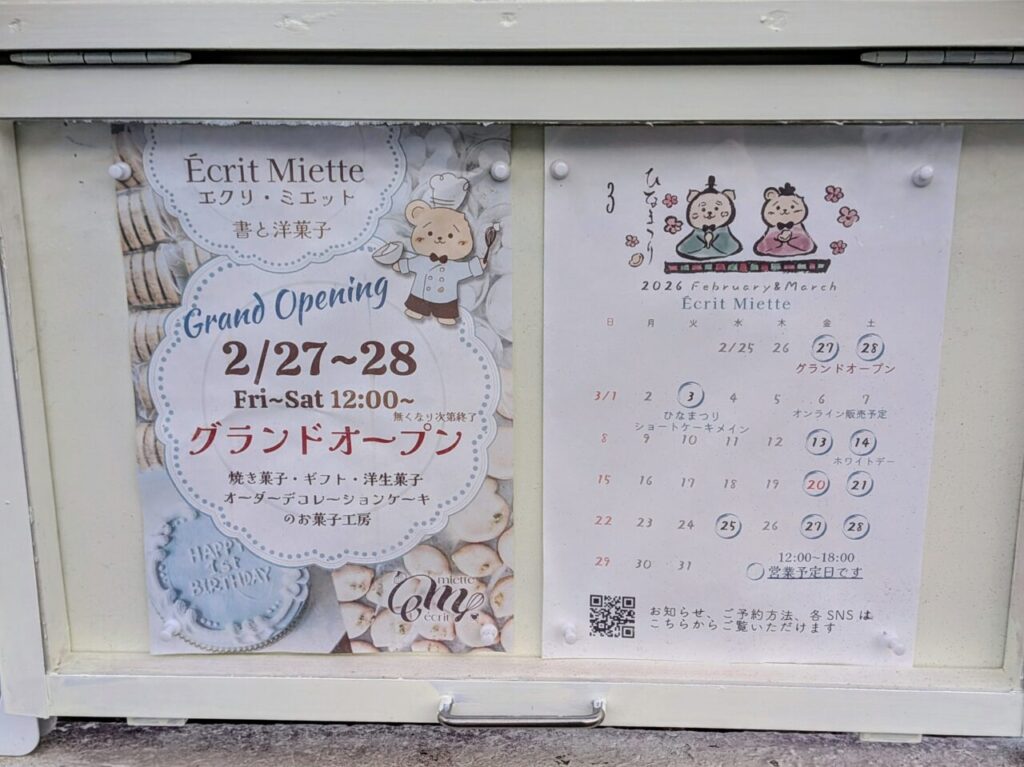 Écrit Miette
エクリ・ミエット
書と洋菓子
Grand Opening
2/27~28
Fri~Sat 12:00~
無くなり次第終了
グランドオープン
焼き菓子・ギフト・洋生菓子
オーダーデコレーションケーキ
のお菓子工房
HAPPY
1ST
BIRTHDAY
miette
écrit
3
ひなまつり
2026 February&March
Écrit Miette
日 月 火 水 木 金 土
2/25 26 27 28
グランドオープン
3/1 2 3 4 5 6 7
ひなまつり
ショートケーキメイン
オンライン販売予定
8 9 10 11 12 13 14
ホワイトデー
15 16 17 18 19 20 21
22 23 24 25 26 27 28
29 30 31
12:00~18:00
営業予定日です
お知らせ、ご予約方法、各SNSは
こちらからご覧いただけます